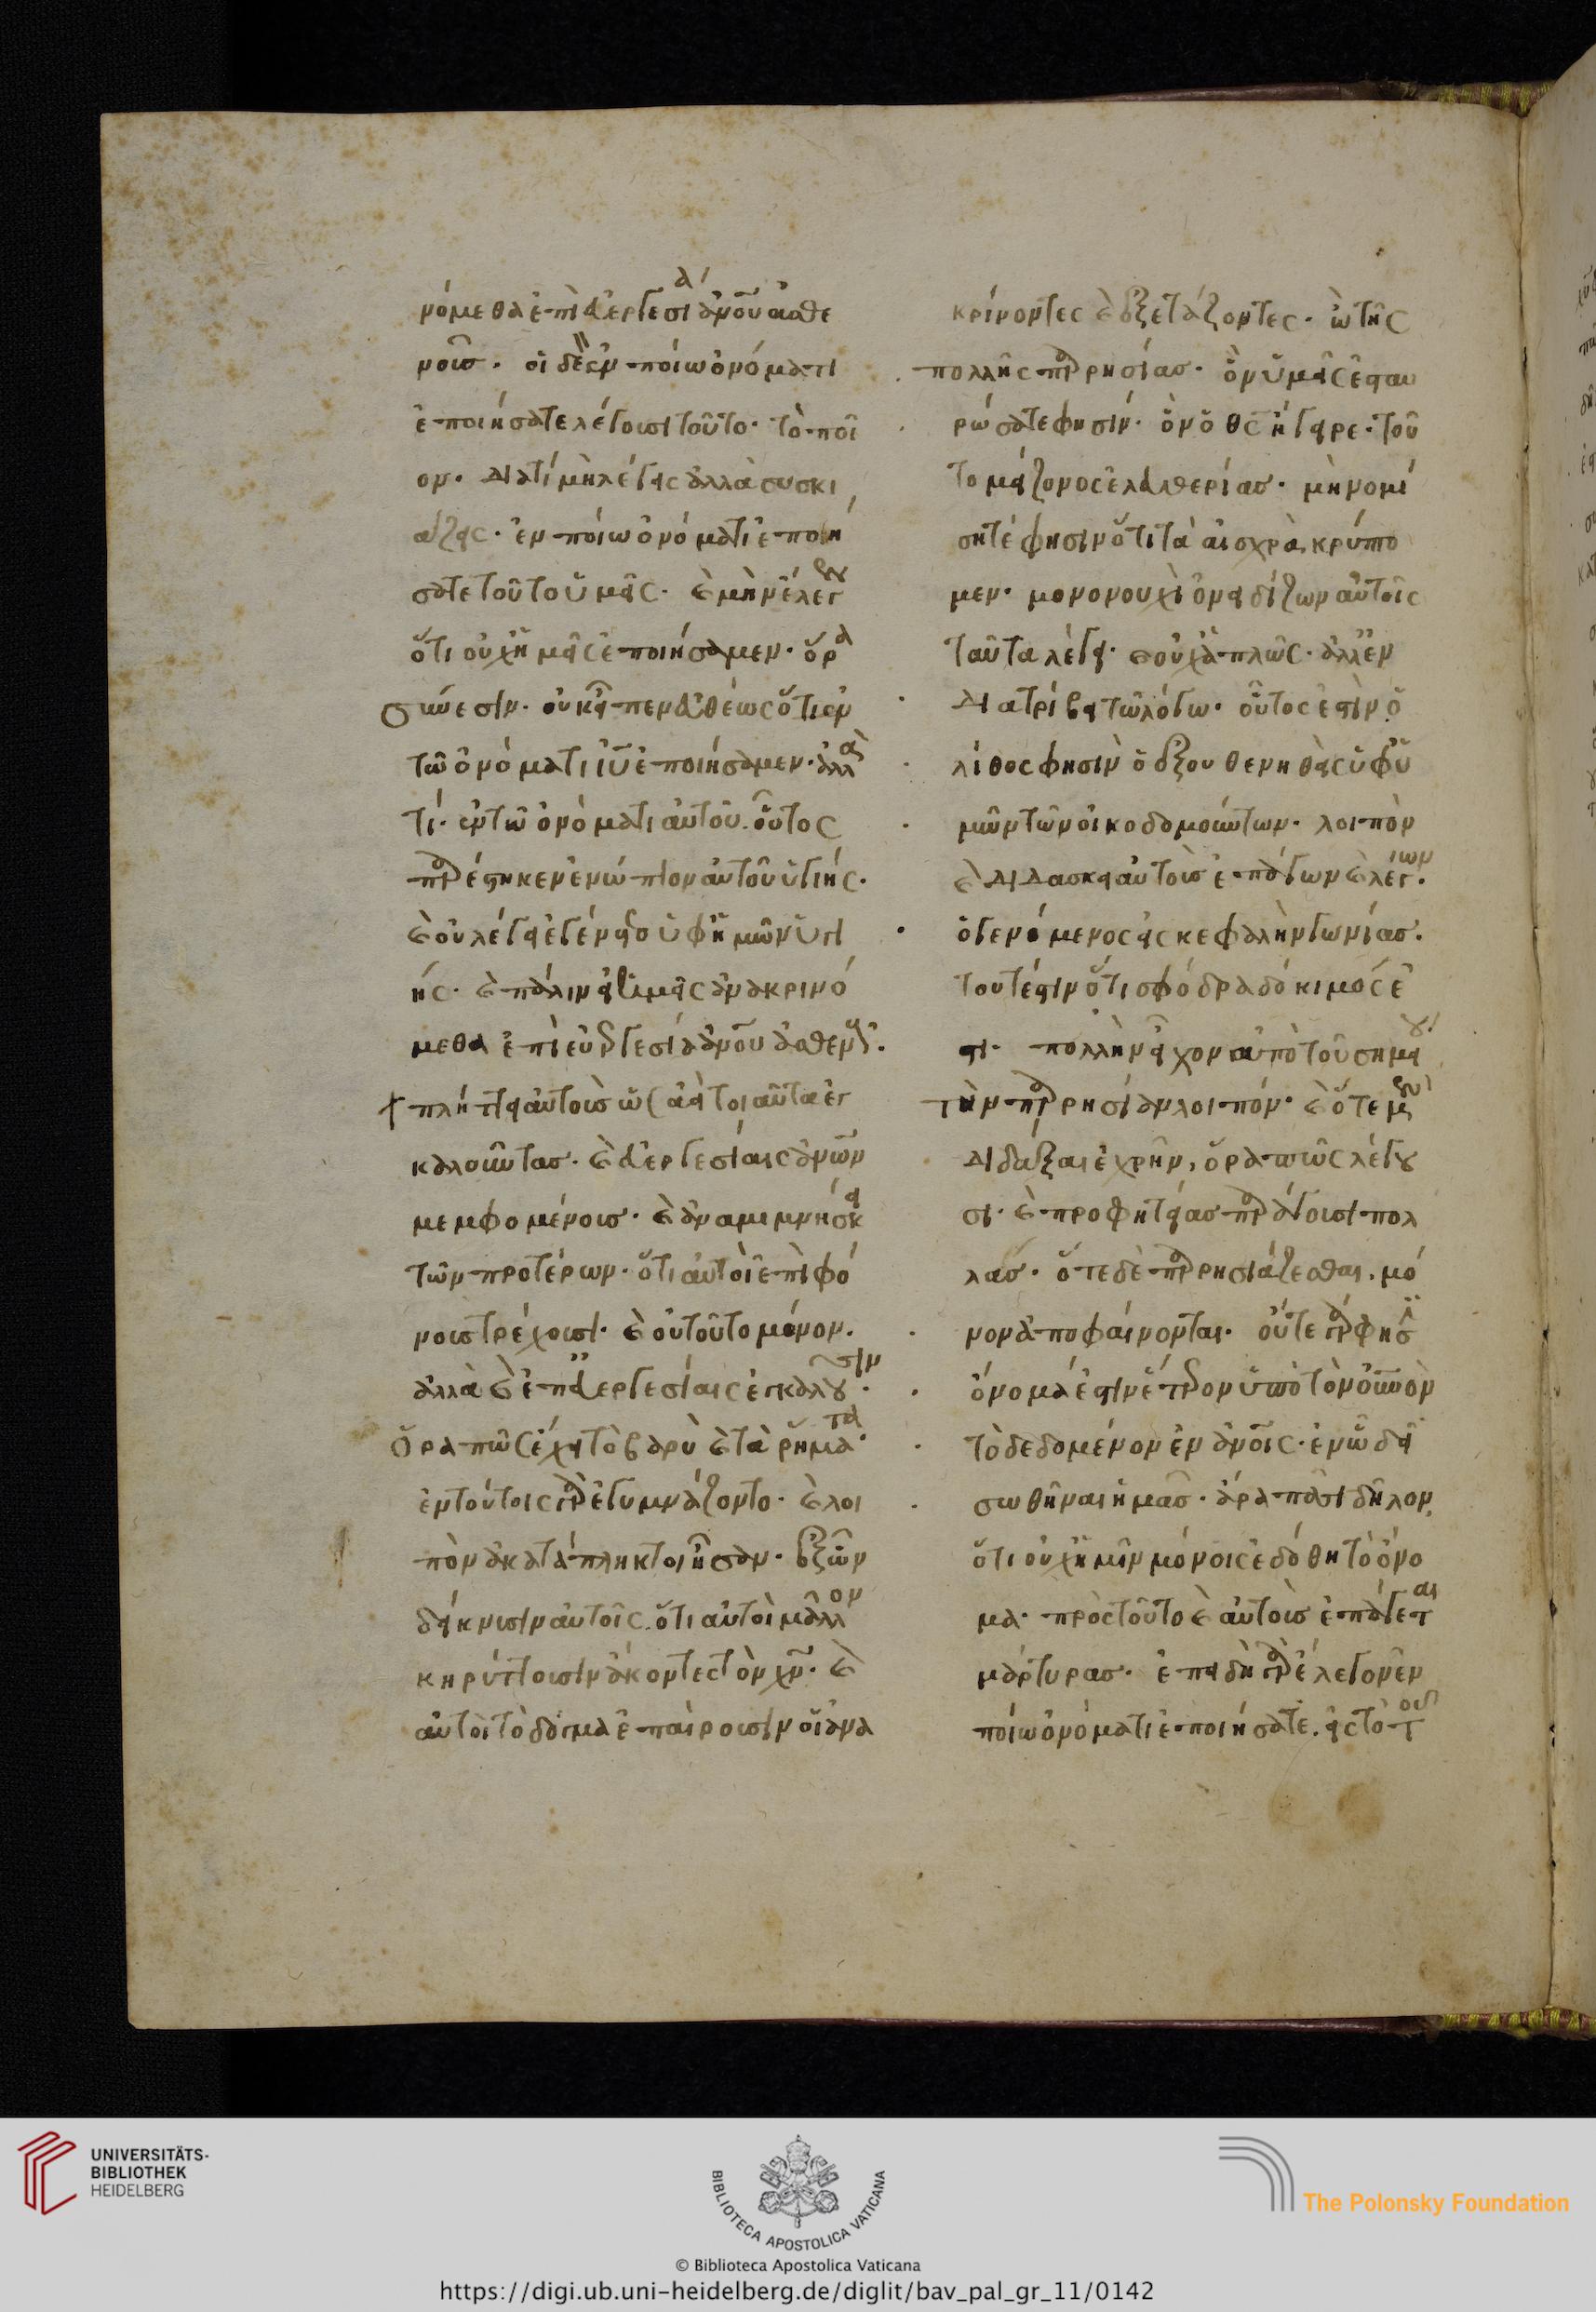 νόμεθα ἐπὶ εὐεργεσία ἀνου ἀσθε
νοῦς. οἱ δὲ ἐν ποίω ὀνόματι
ἐποιήσατε λέγουσι τοῦτο. τὸ ποῖ
ον. διατί μὴ λέγεις ἀλλὰ συσκι
άζεις. ἐν ποίω ὀνόματι ἐποιή
σατε τοῦτο ὑμεῖς. καὶ μὴν ἔλεγον
ὅτι οὐχ ἡμεῖς ἐποιήσαμεν. ὅρα
σύνεσιν. οὐκ εἶπεν εὐθέως ὅτι ἐν
τῶ ὀνόματι ἰῦ ἐποιήσαμεν. ἀλλὰ
τί. ἐν τῶ ὀνόματι αὐτοῦ. οὗτος
παρέστηκεν ἐνώπιον αὐτοῦ ὑγιής.
καὶ οὐ λέγει ἐγένετο ὑφ' ἡμῶν ὑγι
ής. καὶ πάλιν εἰ ἡμεῖς ἀνακρινό
μεθα ἐπὶ εὐεργεσία ἀνου ἀσθενοῦς.
πλήττει αὐτοὺς ὡς ἀεὶ τοιαῦτα ἐγ
καλοῦντας. καὶ εὐεργεσίαις ἀνων
μεμφομένους. καὶ ἀναμιμνήσκει
τῶν προτέρων. ὅτι αὐτοὶ ἐπὶ φό
νους τρέχουσι. καὶ οὐ τοῦτο μόνον.
ἀλλὰ καὶ ἐπ' εὐεργεσίαις ἐγκαλοῦσιν.
Ὅρα πῶς ἔχει τὸ βαρὺ καὶ τὰ ῥήματα.
ἐν τούτοις γὰρ ἐγυμνάζοντο. καὶ λοι
πὸν ἀκατάπληκτοι ἦσαν. ἐξ ὧν
δείκνυσιν αὐτοῖς. ὅτι αὐτοὶ μᾶλλον
κηρύττουσιν ἄκοντες τὸν χν. καὶ
αὐτοὶ τὸ δόγμα ἐπαίρουσιν οἱ ἀνα
κρίνοντες καὶ ἐξετάζοντες. ὢ τῆς
πολλῆς παρρησίας. ὃν ὑμεῖς ἐσταυ
ρώσατε φησίν. ὃν ὁ θς ἤγειρε. τοῦ
το μείζονος ἐλευθερίας. μὴ νομί
σητέ φησιν ὅτι τὰ αἰσχρὰ κρύπτο
μεν. μονονουχὶ ὀνειδίζων αὐτοῖς
ταῦτα λέγει. καὶ οὐχ ἁπλῶς. ἀλλ' ἐν
διατρίβει τῶ λόγω. οὗτος ἐστὶν ὁ
λίθος φησὶν ὁ ἐξουθενηθεὶς ὑφ' ὑ
μῶν τῶν οἰκοδομούντων. λοιπὸν
καὶ διδάσκει αὐτοὺς ἐπάγων καὶ λέγων.
ὁ γενόμενος εἰς κεφαλὴν γωνίας.
τουτέστιν ὅτι σφόδρα δόκιμός ἐ
στι. πολλὴν εἶχον ἀπὸ τοῦ σημείου
τὴν παρρησίαν λοιπόν. καὶ ὅτε μὲν
διδάξαι ἐχρῆν, ὅρα πῶς λέγου
σι. καὶ προφητείας παράγουσι πολ
λάς. ὅτε δὲ παρρησιάζεσθαι. μό
νον ἀποφαίνονται. οὔτε γάρ φησιν
ὄνομά ἐστιν ἕτερον ὑπὸ τὸν οὐνὸν
τὸ δεδομένον ἐν ἀνοις. ἐν ὧ δεῖ
σωθῆναι ἡμᾶς. ἄρα πᾶσι δῆλον.
ὅτι οὐχ ἡμῖν μόνοις ἐδόθη τὸ ὄνο
μα. πρὸς τοῦτο καὶ αὐτοὺς ἐπάγεται
μάρτυρας. ἐπειδὴ γὰρ ἔλεγον ἐν
ποίω ὀνόματι ἐποιήσατε. εἰς τὸ τοῦ
UNIVERSITÄTS-
BIBLIOTHEK
HEIDELBERG
BIBLIOTECA APOSTOLICA VATICANA
The Polonsky Foundation
© Biblioteca Apostolica Vaticana
https://digi.ub.uni-heidelberg.de/diglit/bav_pal_gr_11/0142